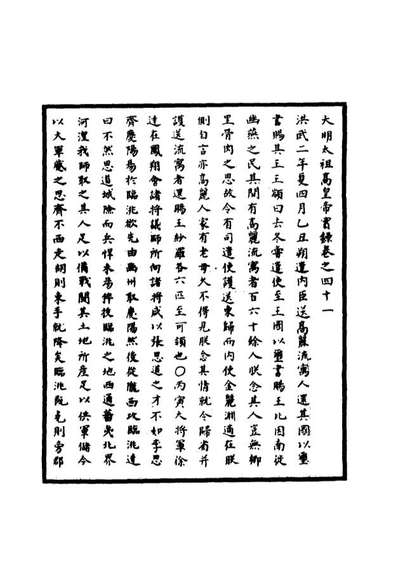 大明太祖高皇帝實錄卷之四十一
洪武二年夏四月乙丑朔遣內臣送高麗流寓人還其國以璽
書賜其王王顓曰去冬嘗遣使至王國以璽書賜王比因南徙
幽燕之民其間有高麗流寓者百六十餘人朕念其人豈無鄉
里骨肉之思故今有司遣使護送東歸而內使金麗淵適在朕
側自言亦高麗人家有老母久不得見朕念其情就令歸省并
護送流寓者還賜王紗羅各六匹至可領也○丙寅大將軍徐
達在鳳翔會諸將議師所向諸將咸以張思道之才不如李思
齊慶陽易於臨洮欲先由豳州取慶陽然後從隴西攻臨洮達
曰不然思道城險而兵悍未易猝拔臨洮之地西通蕃夷北界
河湟我師取之其人足以備戰鬭其土地所產足以供軍儲今
以大軍蹙之思齊不西走胡則束手就降矣臨洮既克則旁郡